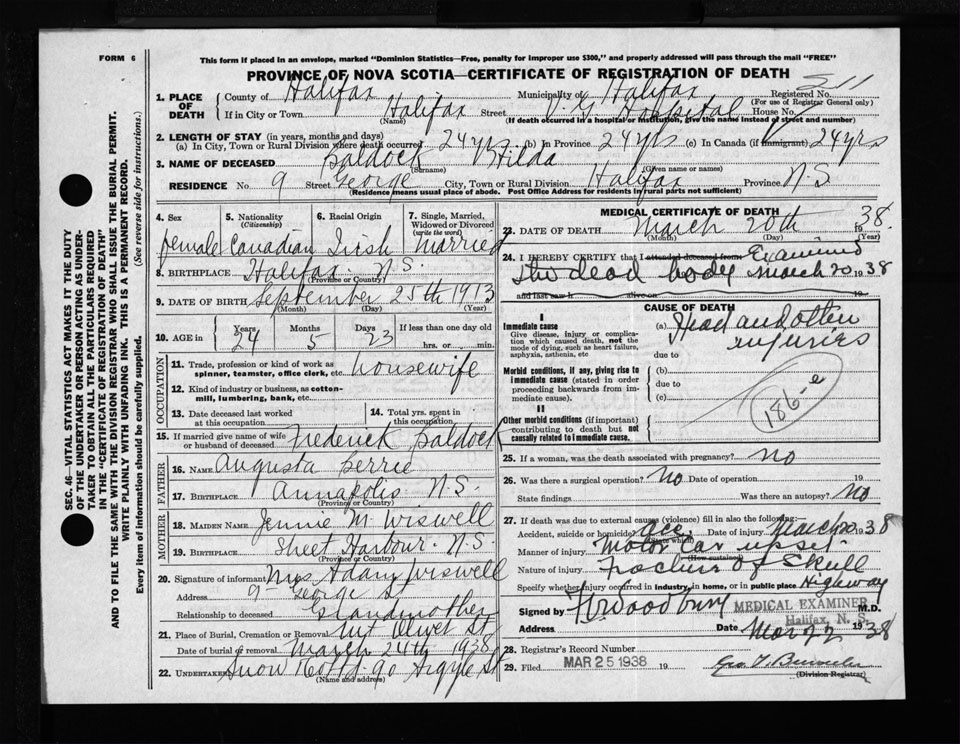 FORM 6
This form if placed in an envelope, marked "Dominion Statistics—Free, penalty for improper use $300," and properly addressed will pass through the mail "FREE"
PROVINCE OF NOVA SCOTIA—CERTIFICATE OF REGISTRATION OF DEATH
SEC. 46—VITAL STATISTICS ACT MAKES IT THE DUTY
OF THE UNDERTAKER OR PERSON ACTING AS UNDER-
TAKER TO OBTAIN ALL THE PARTICULARS REQUIRED
IN THE "CERTIFICATE OF REGISTRATION OF DEATH"
AND TO FILE THE SAME WITH THE DIVISION REGISTRAR WHO SHALL ISSUE THE BURIAL PERMIT.
WRITE PLAINLY WITH UNFADING INK. THIS IS A PERMANENT RECORD.
Every item of information should be carefully supplied. (See reverse side for instructions.)
1. PLACE OF DEATH County of Halifax Municipality of Halifax Registered No. 511
(For use of Registrar General only)
If in City or Town Halifax Street V. G. Hospital House No.
(Name) (If death occurred in a hospital or institution, give the name instead of street and number)
2. LENGTH OF STAY (in years, months and days)
(a) In City, Town or Rural Division where death occurred 24 yrs (b) In Province 24 yrs (c) In Canada (if immigrant) 24 yrs
3. NAME OF DECEASED Baldock Hilda
(Surname) (Given name or names)
RESIDENCE No. 9 Street George City, Town or Rural Division Halifax Province N.S.
(Residence means usual place of abode. Post Office Address for residents in rural parts not sufficient)
4. Sex 5. Nationality (Citizenship) 6. Racial Origin 7. Single, Married, Widowed or Divorced (write the word)
female Canadian Irish Married
8. BIRTHPLACE Halifax N.S.
(Province or Country)
9. DATE OF BIRTH September 25th 1913
(Month) (Day) (Year)
10. AGE in Years Months Days If less than one day old
24 5 23 hrs. or min.
OCCUPATION
11. Trade, profession or kind of work as spinner, teamster, office clerk, etc. housewife
12. Kind of industry or business, as cotton-mill, lumbering, bank, etc.
13. Date deceased last worked at this occupation 14. Total yrs. spent in this occupation
15. If married give name of wife or husband of deceased Frederick Baldock
FATHER
16. NAME Augusta
17. BIRTHPLACE Annapolis N.S.
(Province or Country)
MOTHER
18. MAIDEN NAME Jennie M. Wiswell
19. BIRTHPLACE Sheet Harbour. N.S.
(Province or Country)
20. Signature of informant Mrs Adam Wiswell
Address 9 George St
Relationship to deceased Grandmother
21. Place of Burial, Cremation or Removal Mt Olivet St
Date of burial or removal March 24th 1938
22. UNDERTAKER Snow & Co Ltd 90 Argyle St
(Name and address)
MEDICAL CERTIFICATE OF DEATH
23. DATE OF DEATH March 20th 1938
(Month) (Day) (Year)
24. I HEREBY CERTIFY that I attended deceased from Examined
the dead body March 20 1938
and last saw h alive on 19
CAUSE OF DEATH
I
Immediate cause
Give disease, injury or complication which caused death, not the mode of dying, such as heart failure, asphyxia, asthenia, etc
(a) Head and other injuries
due to
Morbid conditions, if any, giving rise to immediate cause (stated in order proceeding backwards from immediate cause).
(b)
due to
(c)
186-e
II
Other morbid conditions (if important) contributing to death but not causally related to immediate cause.
25. If a woman, was the death associated with pregnancy? no
26. Was there a surgical operation? No Date of operation 19
State findings Was there an autopsy? No
27. If death was due to external causes (violence) fill in also the following:—
Accident, suicide or homicide? acc. Date of injury March 20 1938
(State which)
Manner of injury Motor Car upset
(How sustained)
Nature of injury Fracture of Skull
Specify whether injury occurred in industry, in home, or in public place Highway
Signed by M.D.
MEDICAL EXAMINER
Halifax, N. S.
Address Date Mar 22 1938
28. Registrar's Record Number
29. Filed MAR 25 1938 19
(Division Registrar)